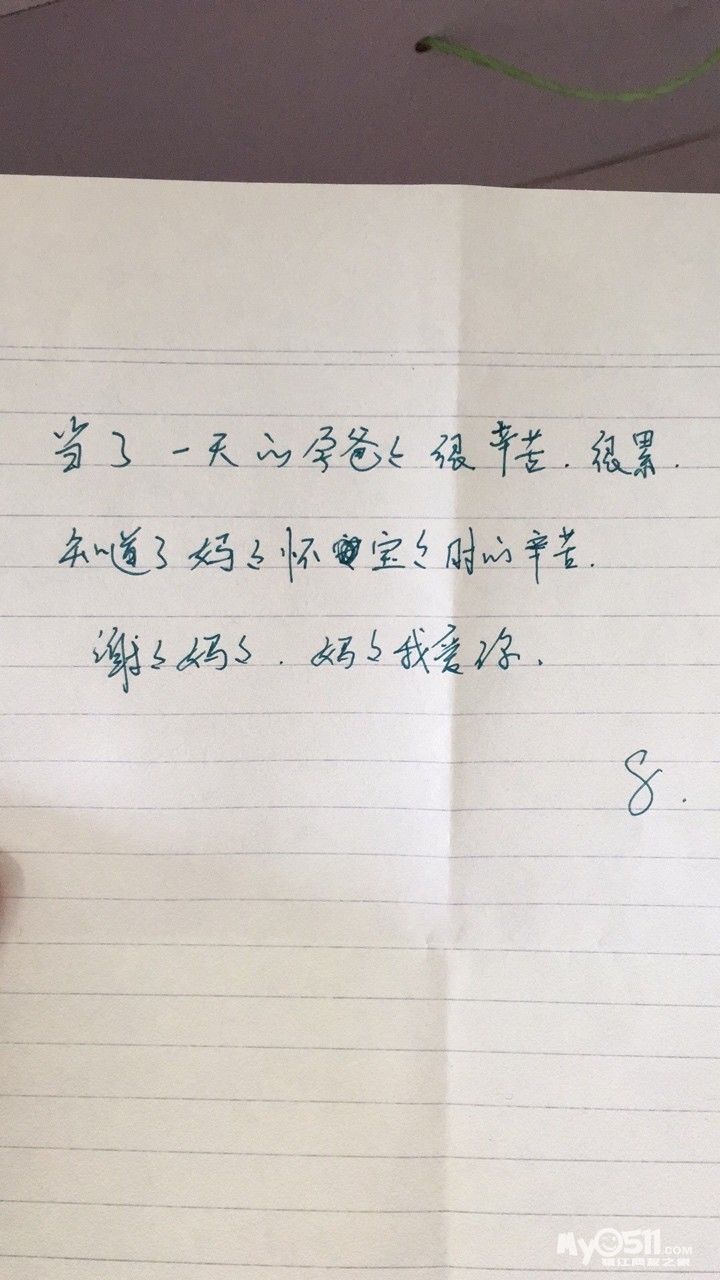 当了一天的孕爸々很辛苦.很累.
知道了妈々怀宝々时的辛苦.
谢々妈々.妈々我爱你.
8.
MyO511.COM
镇江网友之家